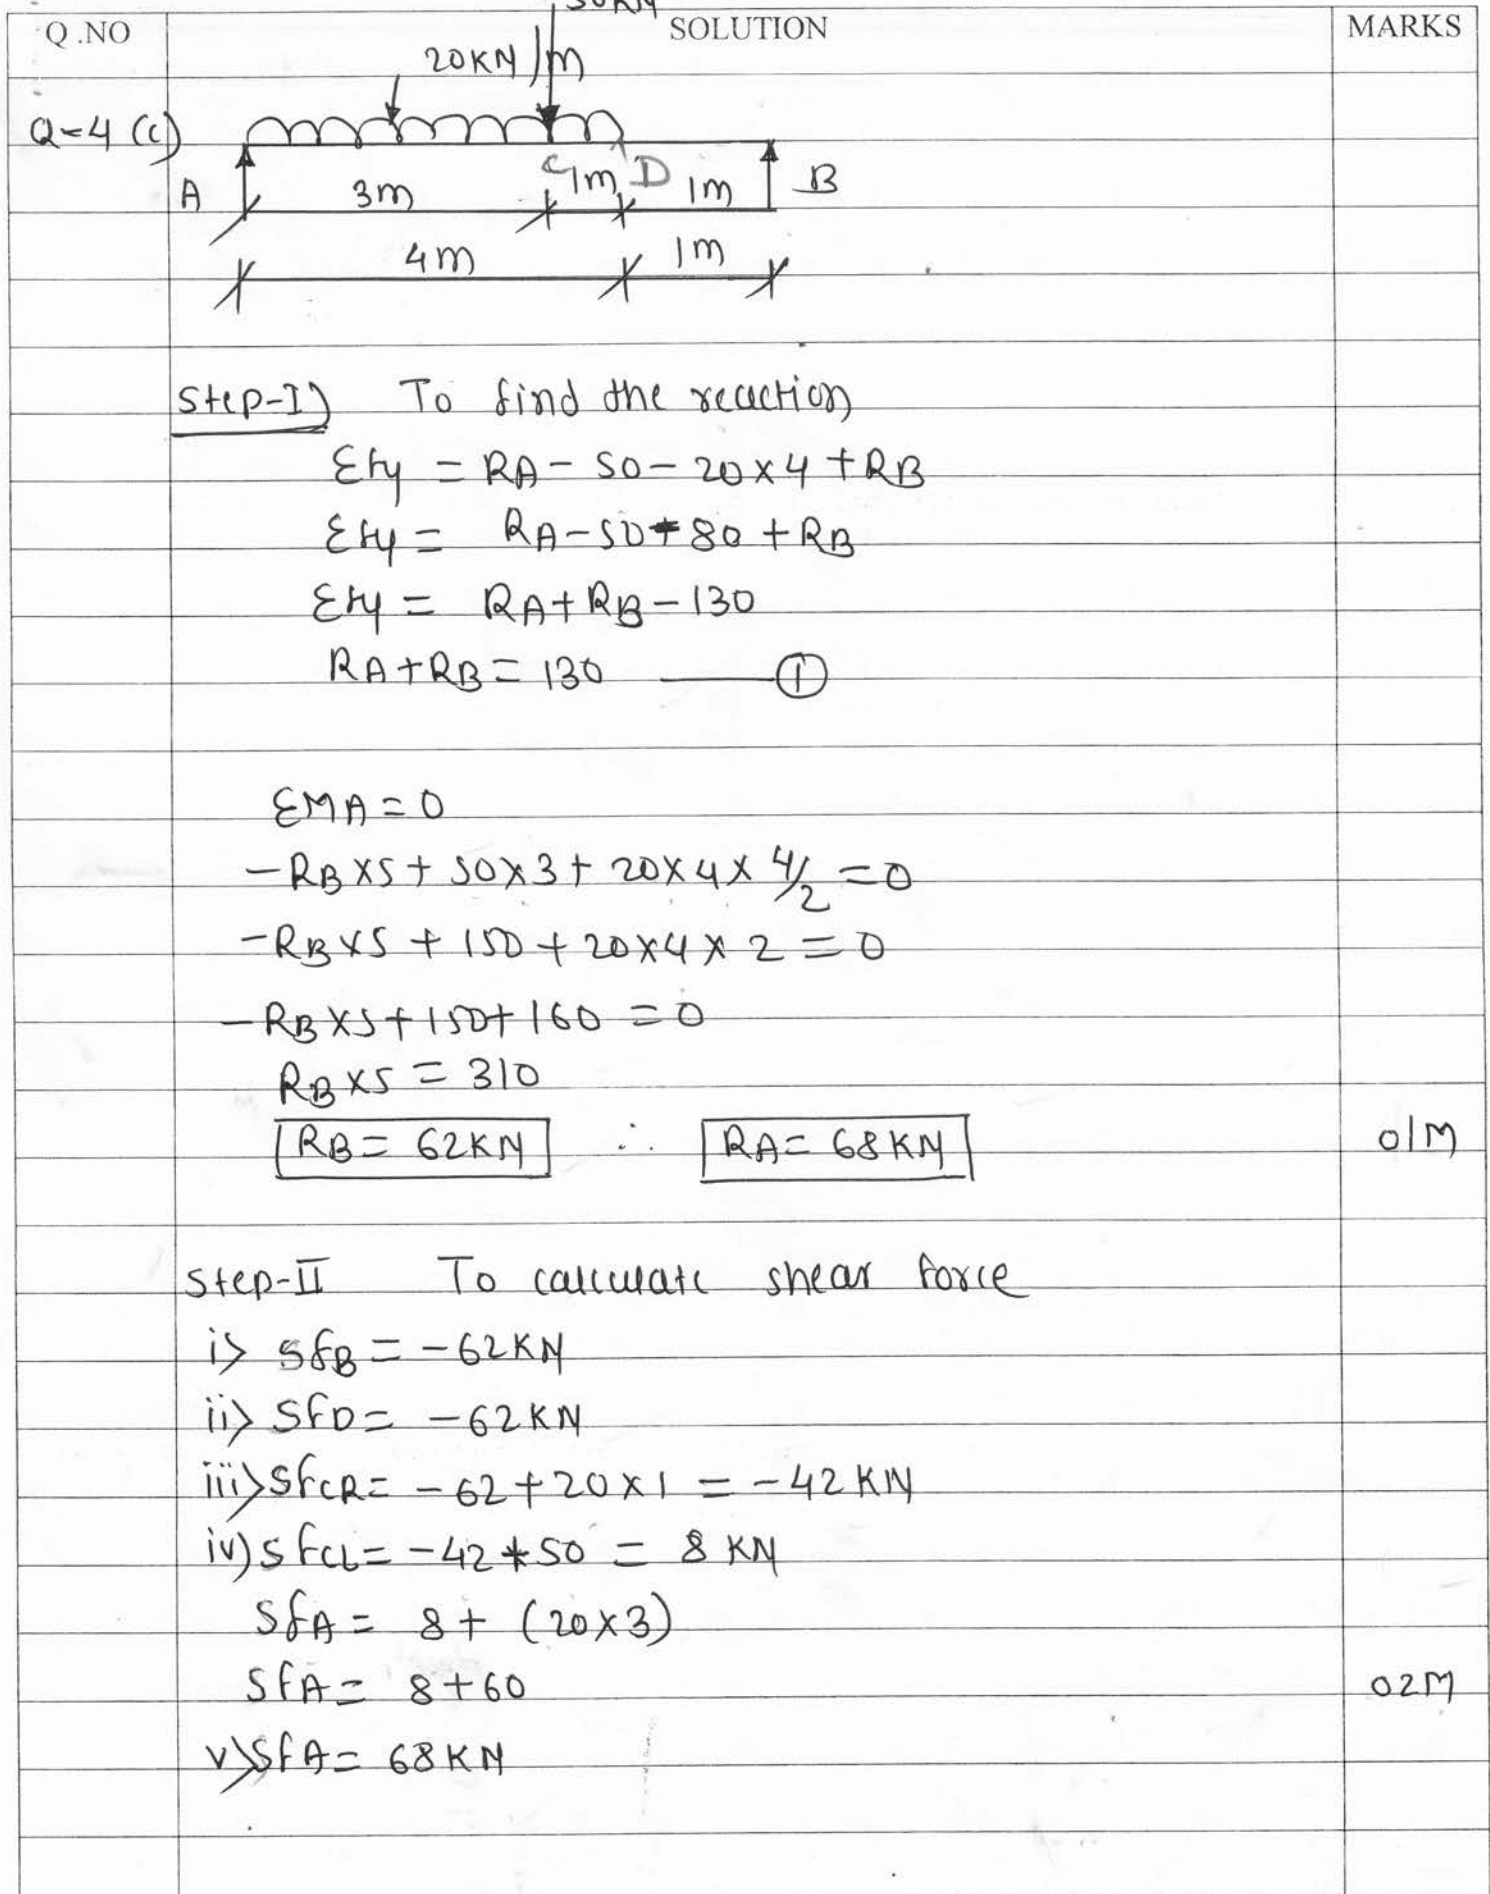 50KN
Q.NO SOLUTION MARKS
20KN/m
Q-4 (c)
A 3m C 1m D 1m B
4m 1m
Step-I) To find the reaction
Σfy = RA - 50 - 20×4 + RB
Σfy = RA - 50 - 80 + RB
Σfy = RA + RB - 130
RA + RB = 130 ——— ①
ΣMA = 0
-RB×5 + 50×3 + 20×4×4/2 = 0
-RB×5 + 150 + 20×4×2 = 0
-RB×5 + 150 + 160 = 0
RB×5 = 310
RB = 62KN ∴ RA = 68KN 01M
Step-II To calculate shear force
i> SfB = -62KN
ii> SfD = -62KN
iii> SfCR = -62 + 20×1 = -42KN
iv) SfCL = -42 + 50 = 8 KN
SfA = 8 + (20×3)
SfA = 8+60 02M
v> SfA = 68KN